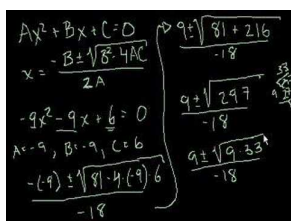 Ax² + Bx + C = 0
x = (-B ± √(B² - 4AC)) / 2A
-9x² - 9x + 6 = 0
A = -9, B = -9, C = 6
(-(-9) ± √(81 - 4·(-9)·6)) / -18
(9 ± √(81 + 216)) / -18
(9 ± √297) / -18
(9 ± √(9·33)) / -18
33